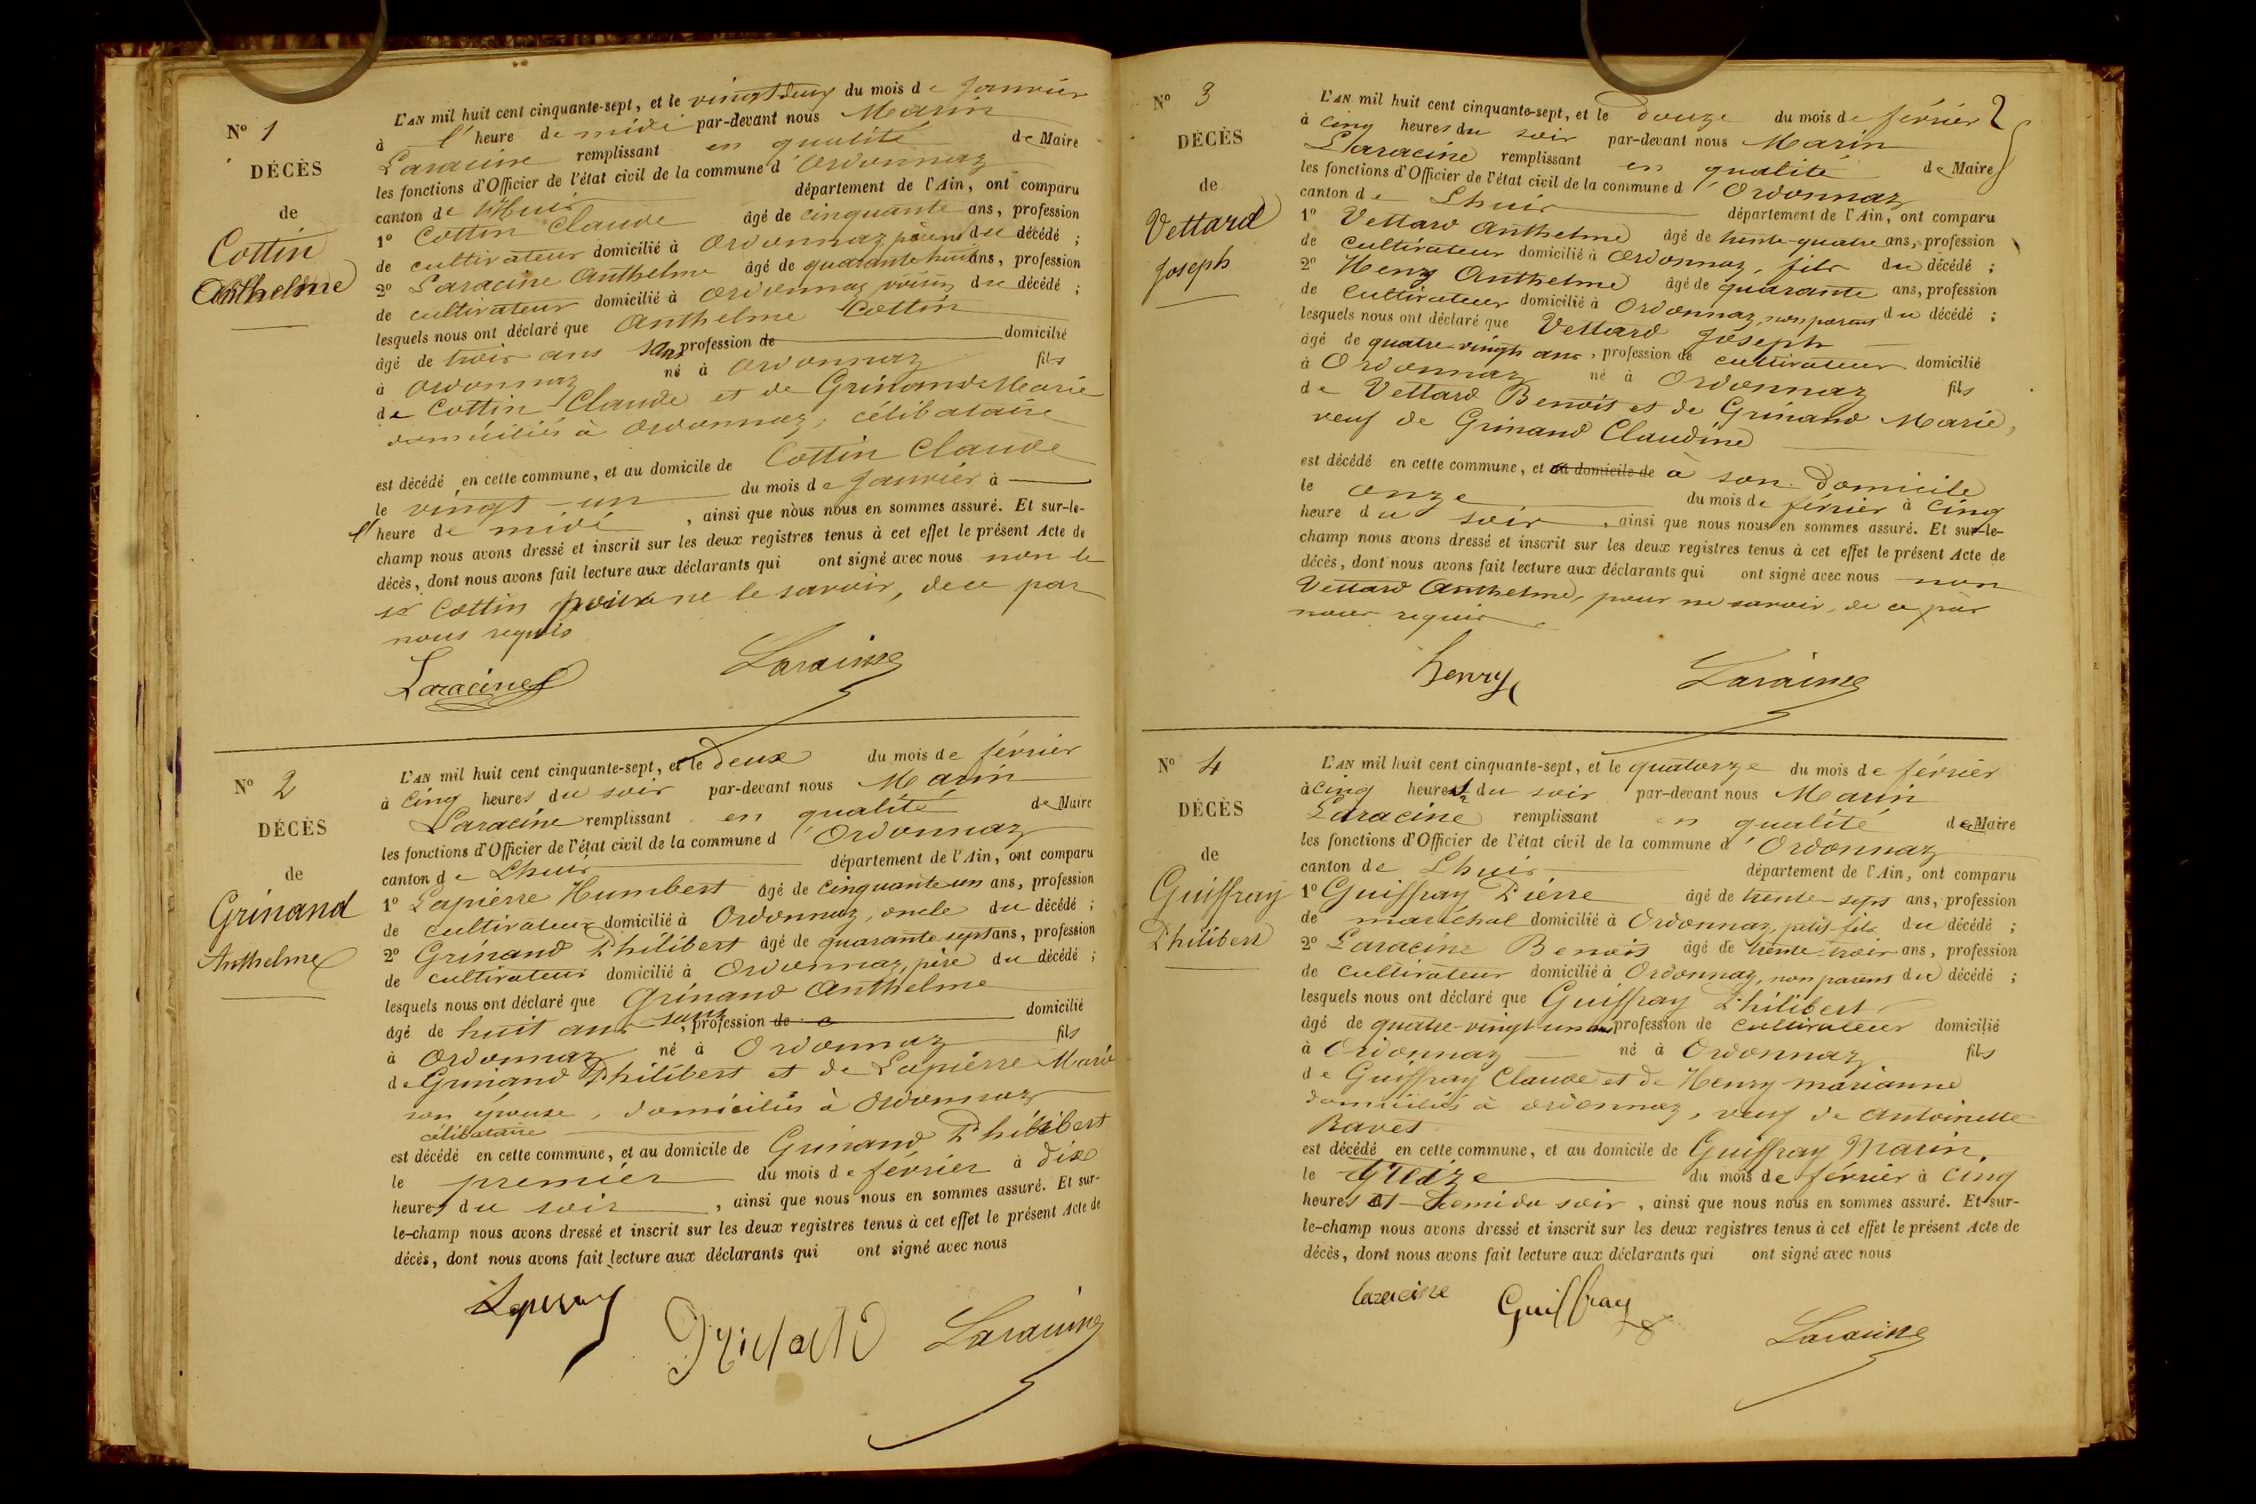 N° 1
DÉCÈS
de
Cottin
Anthelme
L'AN mil huit cent cinquante-sept, et le vingt deux du mois de Janvier
à l'heure de midi par-devant nous Marin
Laracine remplissant en qualité de Maire
les fonctions d'Officier de l'état civil de la commune d'Ordonnaz
canton de Lhuis département de l'Ain, ont comparu
1° Cottin Claude âgé de cinquante ans, profession
de cultivateur domicilié à Ordonnaz père du décédé ;
2° Laracine Anthelme âgé de quarante huit ans, profession
de cultivateur domicilié à Ordonnaz voisin du décédé ;
lesquels nous ont déclaré que Anthelme Cottin
âgé de trois ans sans profession de domicilié
à Ordonnaz né à Ordonnaz fils
de Cottin Claude et de Grinand Marie
domiciliés à Ordonnaz, célibataire
est décédé en cette commune, et au domicile de Cottin Claude
le vingt-un du mois de Janvier à
l'heure de midi, ainsi que nous nous en sommes assuré. Et sur-le-
champ nous avons dressé et inscrit sur les deux registres tenus à cet effet le présent Acte de
décès, dont nous avons fait lecture aux déclarants qui ont signé avec nous non le
sr Cottin pour ne le savoir, de ce par
nous requis
Laracine Laracine
N° 2
DÉCÈS
de
Grinand
Anthelme
L'AN mil huit cent cinquante-sept, et le deux du mois de février
à cinq heures du soir par-devant nous Marin
Laracine remplissant en qualité de Maire
les fonctions d'Officier de l'état civil de la commune d'Ordonnaz
canton de Lhuis département de l'Ain, ont comparu
1° Lapierre Humbert âgé de cinquante un ans, profession
de cultivateur domicilié à Ordonnaz, oncle du décédé ;
2° Grinand Philibert âgé de quarante sept ans, profession
de cultivateur domicilié à Ordonnaz, père du décédé ;
lesquels nous ont déclaré que Grinand Anthelme
âgé de huit ans sans, profession de domicilié
à Ordonnaz né à Ordonnaz fils
de Grinand Philibert et de Lapierre Marie
son épouse, domiciliés à Ordonnaz
célibataire
est décédé en cette commune, et au domicile de Grinand Philibert
le premier du mois de février à dix
heures du soir, ainsi que nous nous en sommes assuré. Et sur-
le-champ nous avons dressé et inscrit sur les deux registres tenus à cet effet le présent Acte de
décès, dont nous avons fait lecture aux déclarants qui ont signé avec nous
Laracine
N° 3
DÉCÈS
de
Vettard
Joseph
2
L'AN mil huit cent cinquante-sept, et le douze du mois de février
à cinq heures du soir par-devant nous Marin
Laracine remplissant en qualité de Maire
les fonctions d'Officier de l'état civil de la commune d'Ordonnaz
canton de Lhuis département de l'Ain, ont comparu
1° Vettard Anthelme âgé de trente-quatre ans, profession
de cultivateur domicilié à Ordonnaz, fils du décédé ;
2° Henry Anthelme âgé de quarante ans, profession
de cultivateur domicilié à Ordonnaz, non parent du décédé ;
lesquels nous ont déclaré que Vettard Joseph
âgé de quatre-vingts ans, profession de cultivateur domicilié
à Ordonnaz né à Ordonnaz fils
de Vettard Benoit et de Grinand Marie,
veuf de Grinand Claudine
est décédé en cette commune, et au domicile de à son domicile
le onze du mois de février à cinq
heure du soir, ainsi que nous nous en sommes assuré. Et sur-le-
champ nous avons dressé et inscrit sur les deux registres tenus à cet effet le présent Acte de
décès, dont nous avons fait lecture aux déclarants qui ont signé avec nous non
Vettard Anthelme, pour ne savoir, de ce par
nous requis
henry Laracine
N° 4
DÉCÈS
de
Guiffray
Philibert
L'AN mil huit cent cinquante-sept, et le quatorze du mois de février
à cinq heures du soir par-devant nous Marin
Laracine remplissant en qualité de Maire
les fonctions d'Officier de l'état civil de la commune d'Ordonnaz
canton de Lhuis département de l'Ain, ont comparu
1° Guiffray Pierre âgé de trente-sept ans, profession
de maréchal domicilié à Ordonnaz, petit-fils du décédé ;
2° Laracine Benoit âgé de trente-trois ans, profession
de cultivateur domicilié à Ordonnaz, non parent du décédé ;
lesquels nous ont déclaré que Guiffray Philibert
âgé de quatre-vingt-un ans profession de cultivateur domicilié
à Ordonnaz né à Ordonnaz fils
de Guiffray Claude et de Henry marianne
domiciliés à Ordonnaz, veuf de Antoinette
Ravet
est décédé en cette commune, et au domicile de Guiffray Marin,
le treize du mois de février à cinq
heures et demi du soir, ainsi que nous nous en sommes assuré. Et sur-
le-champ nous avons dressé et inscrit sur les deux registres tenus à cet effet le présent Acte de
décès, dont nous avons fait lecture aux déclarants qui ont signé avec nous
laracine Guiffray Laracine